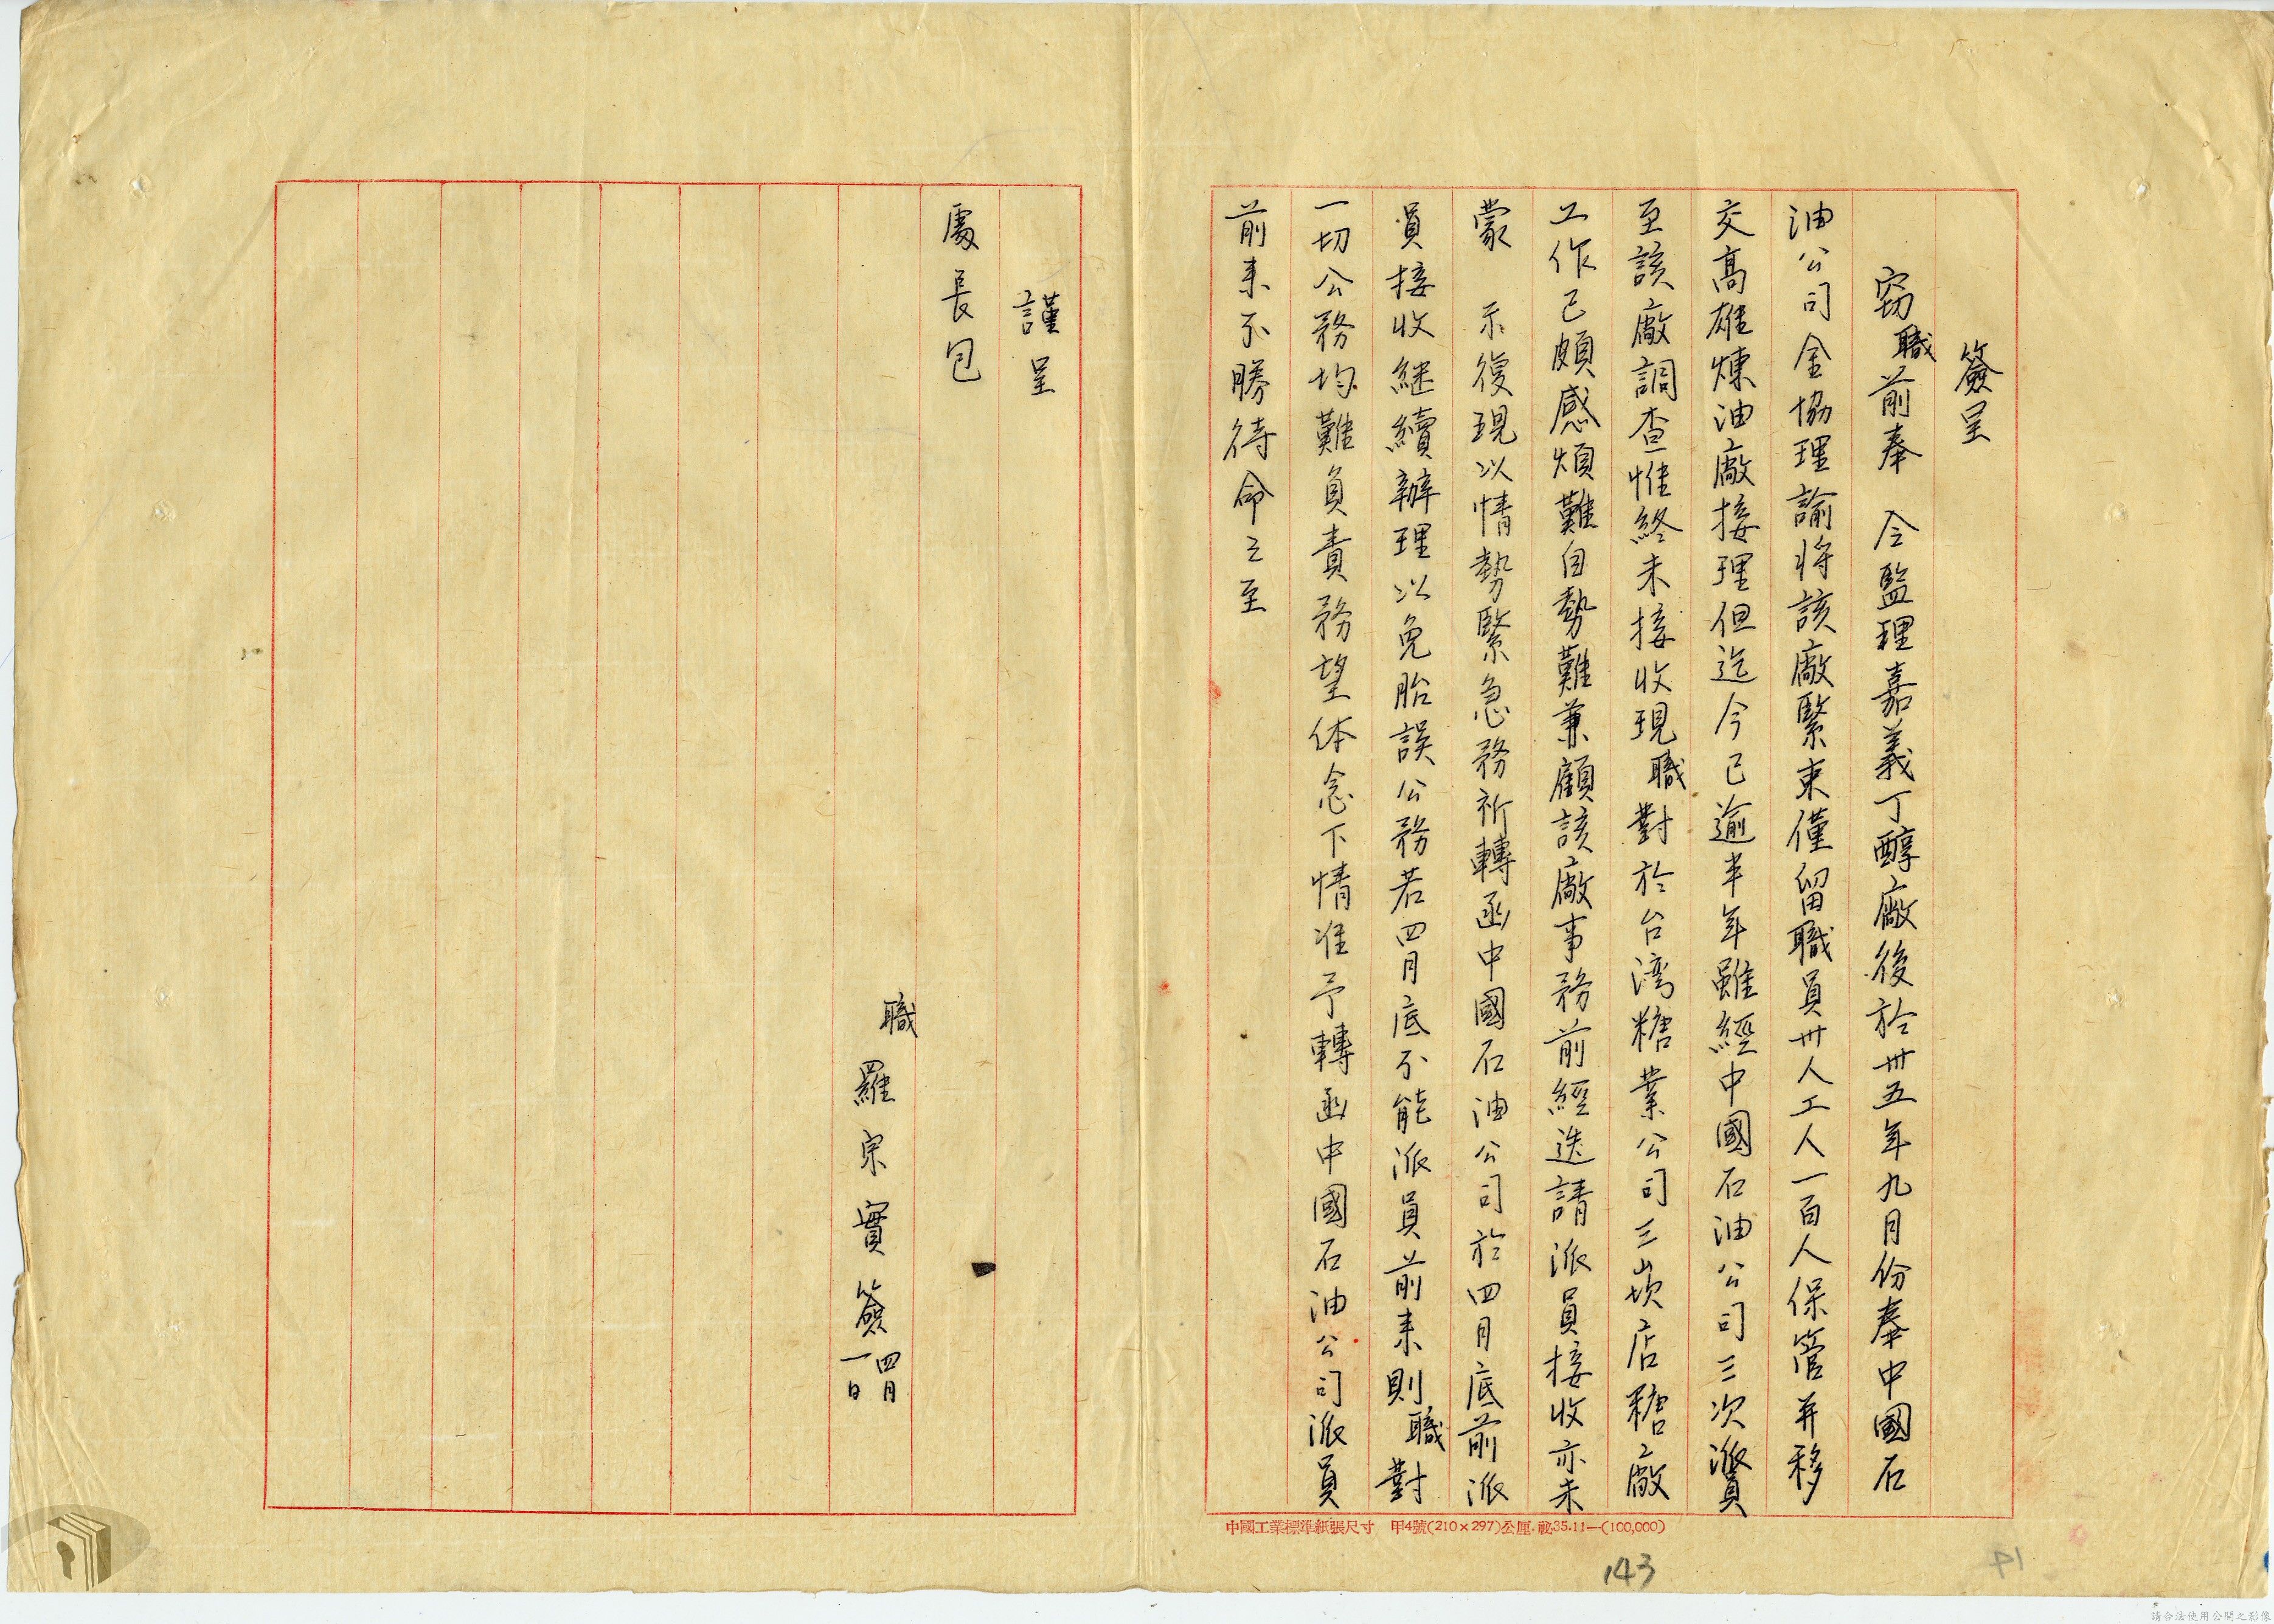 簽呈
竊職前奉　令監理嘉義丁醇廠後於卅五年九月份奉中國石
油公司金協理諭將該廠緊束僅留職員卅人工人一百人保管并移
交高雄煉油廠接理但迄今已逾半年雖經中國石油公司三次派員
至該廠調查惟終未接收現職對於台湾糖業公司三崁店糖廠
工作已頗感煩難自勢難兼顧該廠事務前經迭請派員接收亦未
蒙　示復現以情勢緊急務祈轉函中國石油公司於四月底前派
員接收継續辦理以免胎誤公務若四月底不能派員前来則職對
一切公務均難負責務望体念下情准予轉函中國石油公司派員
前来不勝待命之至
謹呈
處長包
職羅宗實簽四月一日
中國工業標準紙張尺寸　甲4號(210×297)公厘.祕35.11—(100,000)
143
14
請合法使用公開之影像